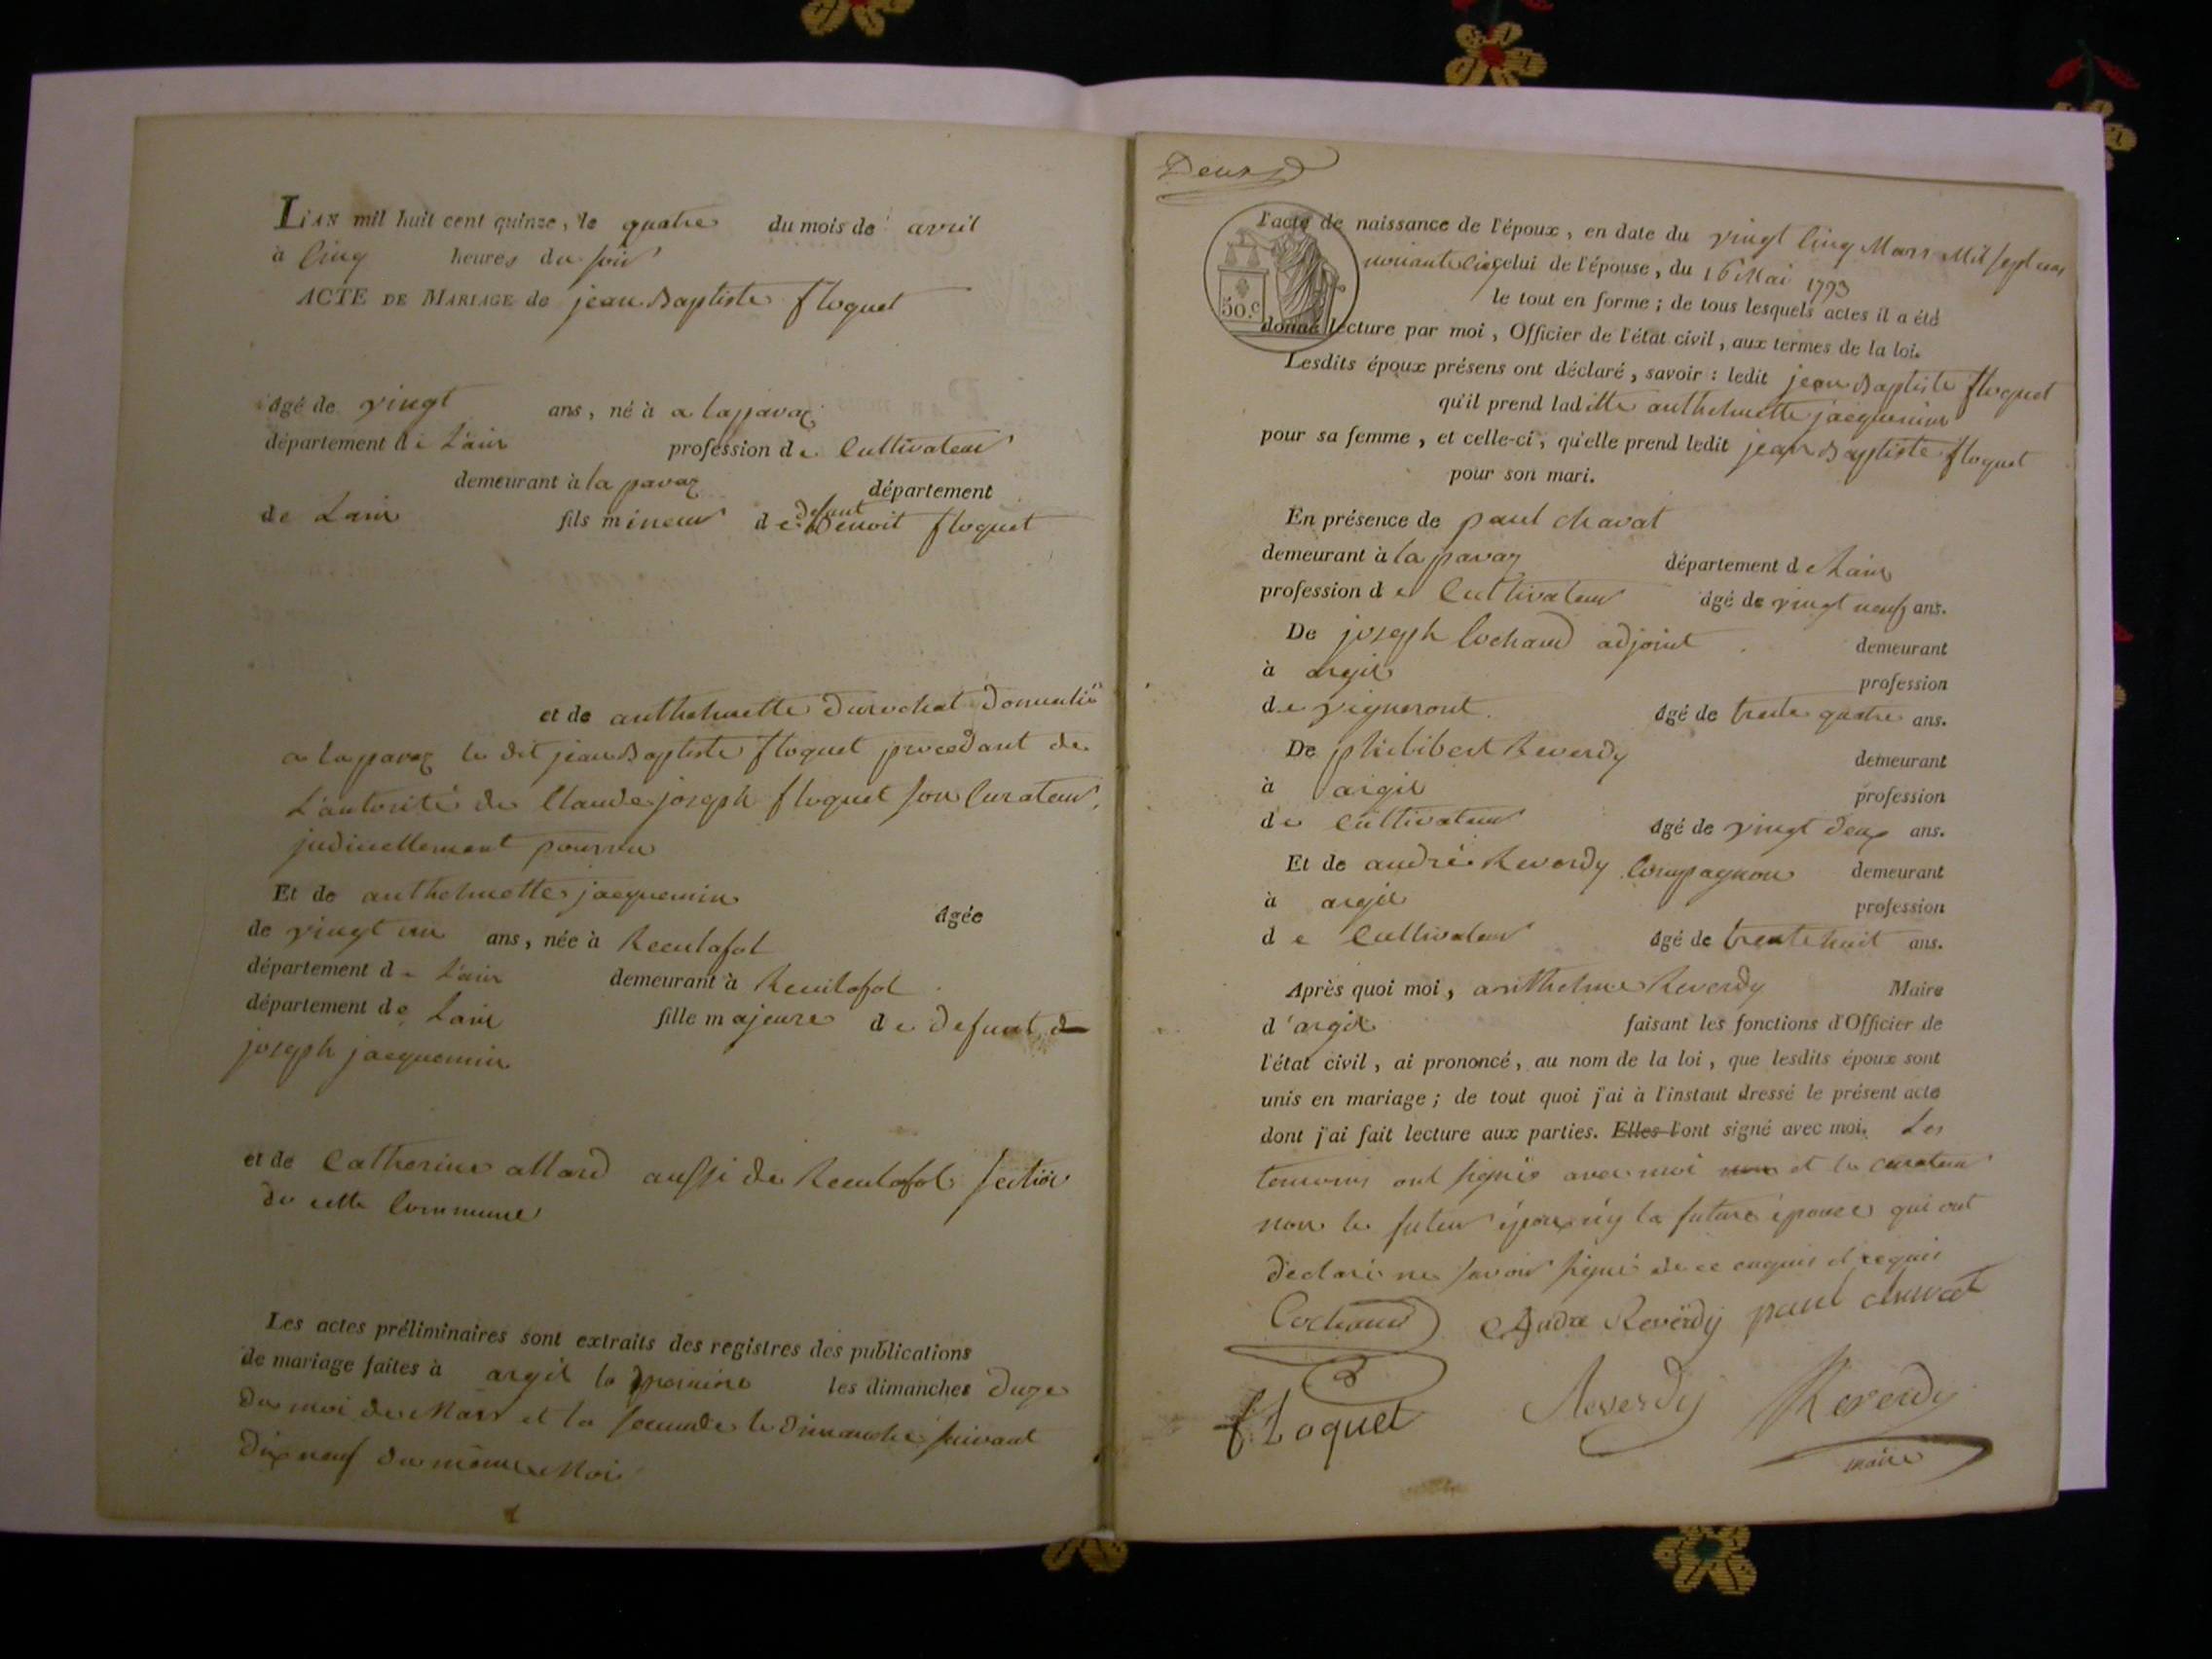 L'AN mil huit cent quinze, le quatre du mois de avril
à cinq heures du soir
ACTE DE MARIAGE de jean Baptiste floquet
âgé de vingt ans, né à a lapavaz
département de L'ain profession de Cultivateur
demeurant à la pavaz département
de Lain fils mineur de defunt Benoit floquet
et de anthelmette Durochat Domiciliée
a lapavaz le dit jean Baptiste floquet procedant de
L'autorité de Claude joseph floquet son Curateur,
judiciellement pourvu
Et de anthelmette jacquemin âgée
de vingt un ans, née à Reculafol
département de L'ain demeurant à Reculafol
département de Lain fille majeure de defunt
joseph jacquemin
et de Catherine allard aussi de Reculafol section
de cette Commune
Les actes préliminaires sont extraits des registres des publications
de mariage faites à argil la premiere les dimanches
du moi de Mars et la seconde le Dimanche suivant
Dix neuf du même Moi
l'acte de naissance de l'époux, en date du vingt Cinq Mars Mil sept cens
nonante Cinq celui de l'épouse, du 16 Mai 1793
le tout en forme ; de tous lesquels actes il a été
donné lecture par moi, Officier de l'état civil, aux termes de la loi.
50.c
Lesdits époux présens ont déclaré, savoir : ledit jean Baptiste floquet
qu'il prend ladite anthelmette jacquemin
pour sa femme, et celle-ci, qu'elle prend ledit jean Baptiste floquet
pour son mari.
En présence de paul chavat
demeurant à la pavaz département de Lain
profession de Cultivateur âgé de vingt neuf ans.
De joseph Cochaud adjoint demeurant
à argil profession
de vigneront. âgé de trente quatre ans.
De philibert Reverdy demeurant
à argil profession
de cultivateur âgé de vingt deux ans.
Et de andré Reverdy Compagnon demeurant
à argil profession
de Cultivateur âgé de trente huit ans.
Après quoi moi, anthelme Reverdy Maire
d'argil faisant les fonctions d'Officier de
l'état civil, ai prononcé, au nom de la loi, que lesdits époux sont
unis en mariage ; de tout quoi j'ai à l'instant dressé le présent acte
dont j'ai fait lecture aux parties. Elles l'ont signé avec moi. Les
temoins ont signés avec moi et le curateur
non le futur époux ny la future épouse qui ont
declaré ne savoir signé de ce enquis et requis
Cochaud André Reverdy paul chavat
floquet Reverdy Reverdy
maire